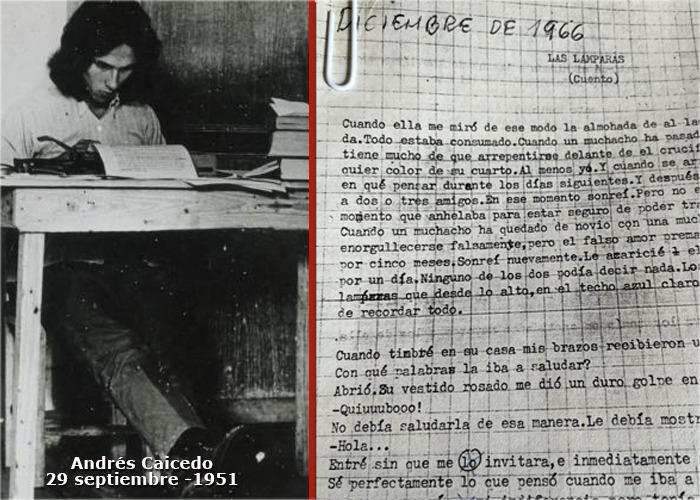 DICIEMBRE DE 1966
LAS LAMPARAS
(Cuento)
Cuando ella me miró de ese modo la almohada de al la
da.Todo estaba consumado.Cuando un muchacho ha pasad
tiene mucho de que arrepentirse delante de el crucif
quier color de su cuarto.Al menos yo.Y cuando se
en qué pensar durante los días siguientes.Y después
a dos o tres amigos.En ese momento sonreí.Pero no
momento que anhelaba para estar seguro de poder tra
Cuando un muchacho ha quedado de novio con una muc
enorgullecerse falsamente,pero el falso amor prema
por cinco meses.Sonreí nuevamente.Le acarició el
por un día.Ninguno de los dos podía decir nada.Lo
lámparas que desde lo alto,en el techo azul claro
de recordar todo.
Cuando timbré en su casa mis brazos recibieron u
Con qué palabras la iba a saludar?
Abrió.Su vestido rosado me dió un duro golpe en
-Quiuuubooo!
No debía saludarla de esa manera.Le debía mostr
-Hola...
Entré sin que me lo invitara,e inmediatamente
Sé perfectamente lo que pensó cuando me iba a
Andrés Caicedo
29 septiembre -1951